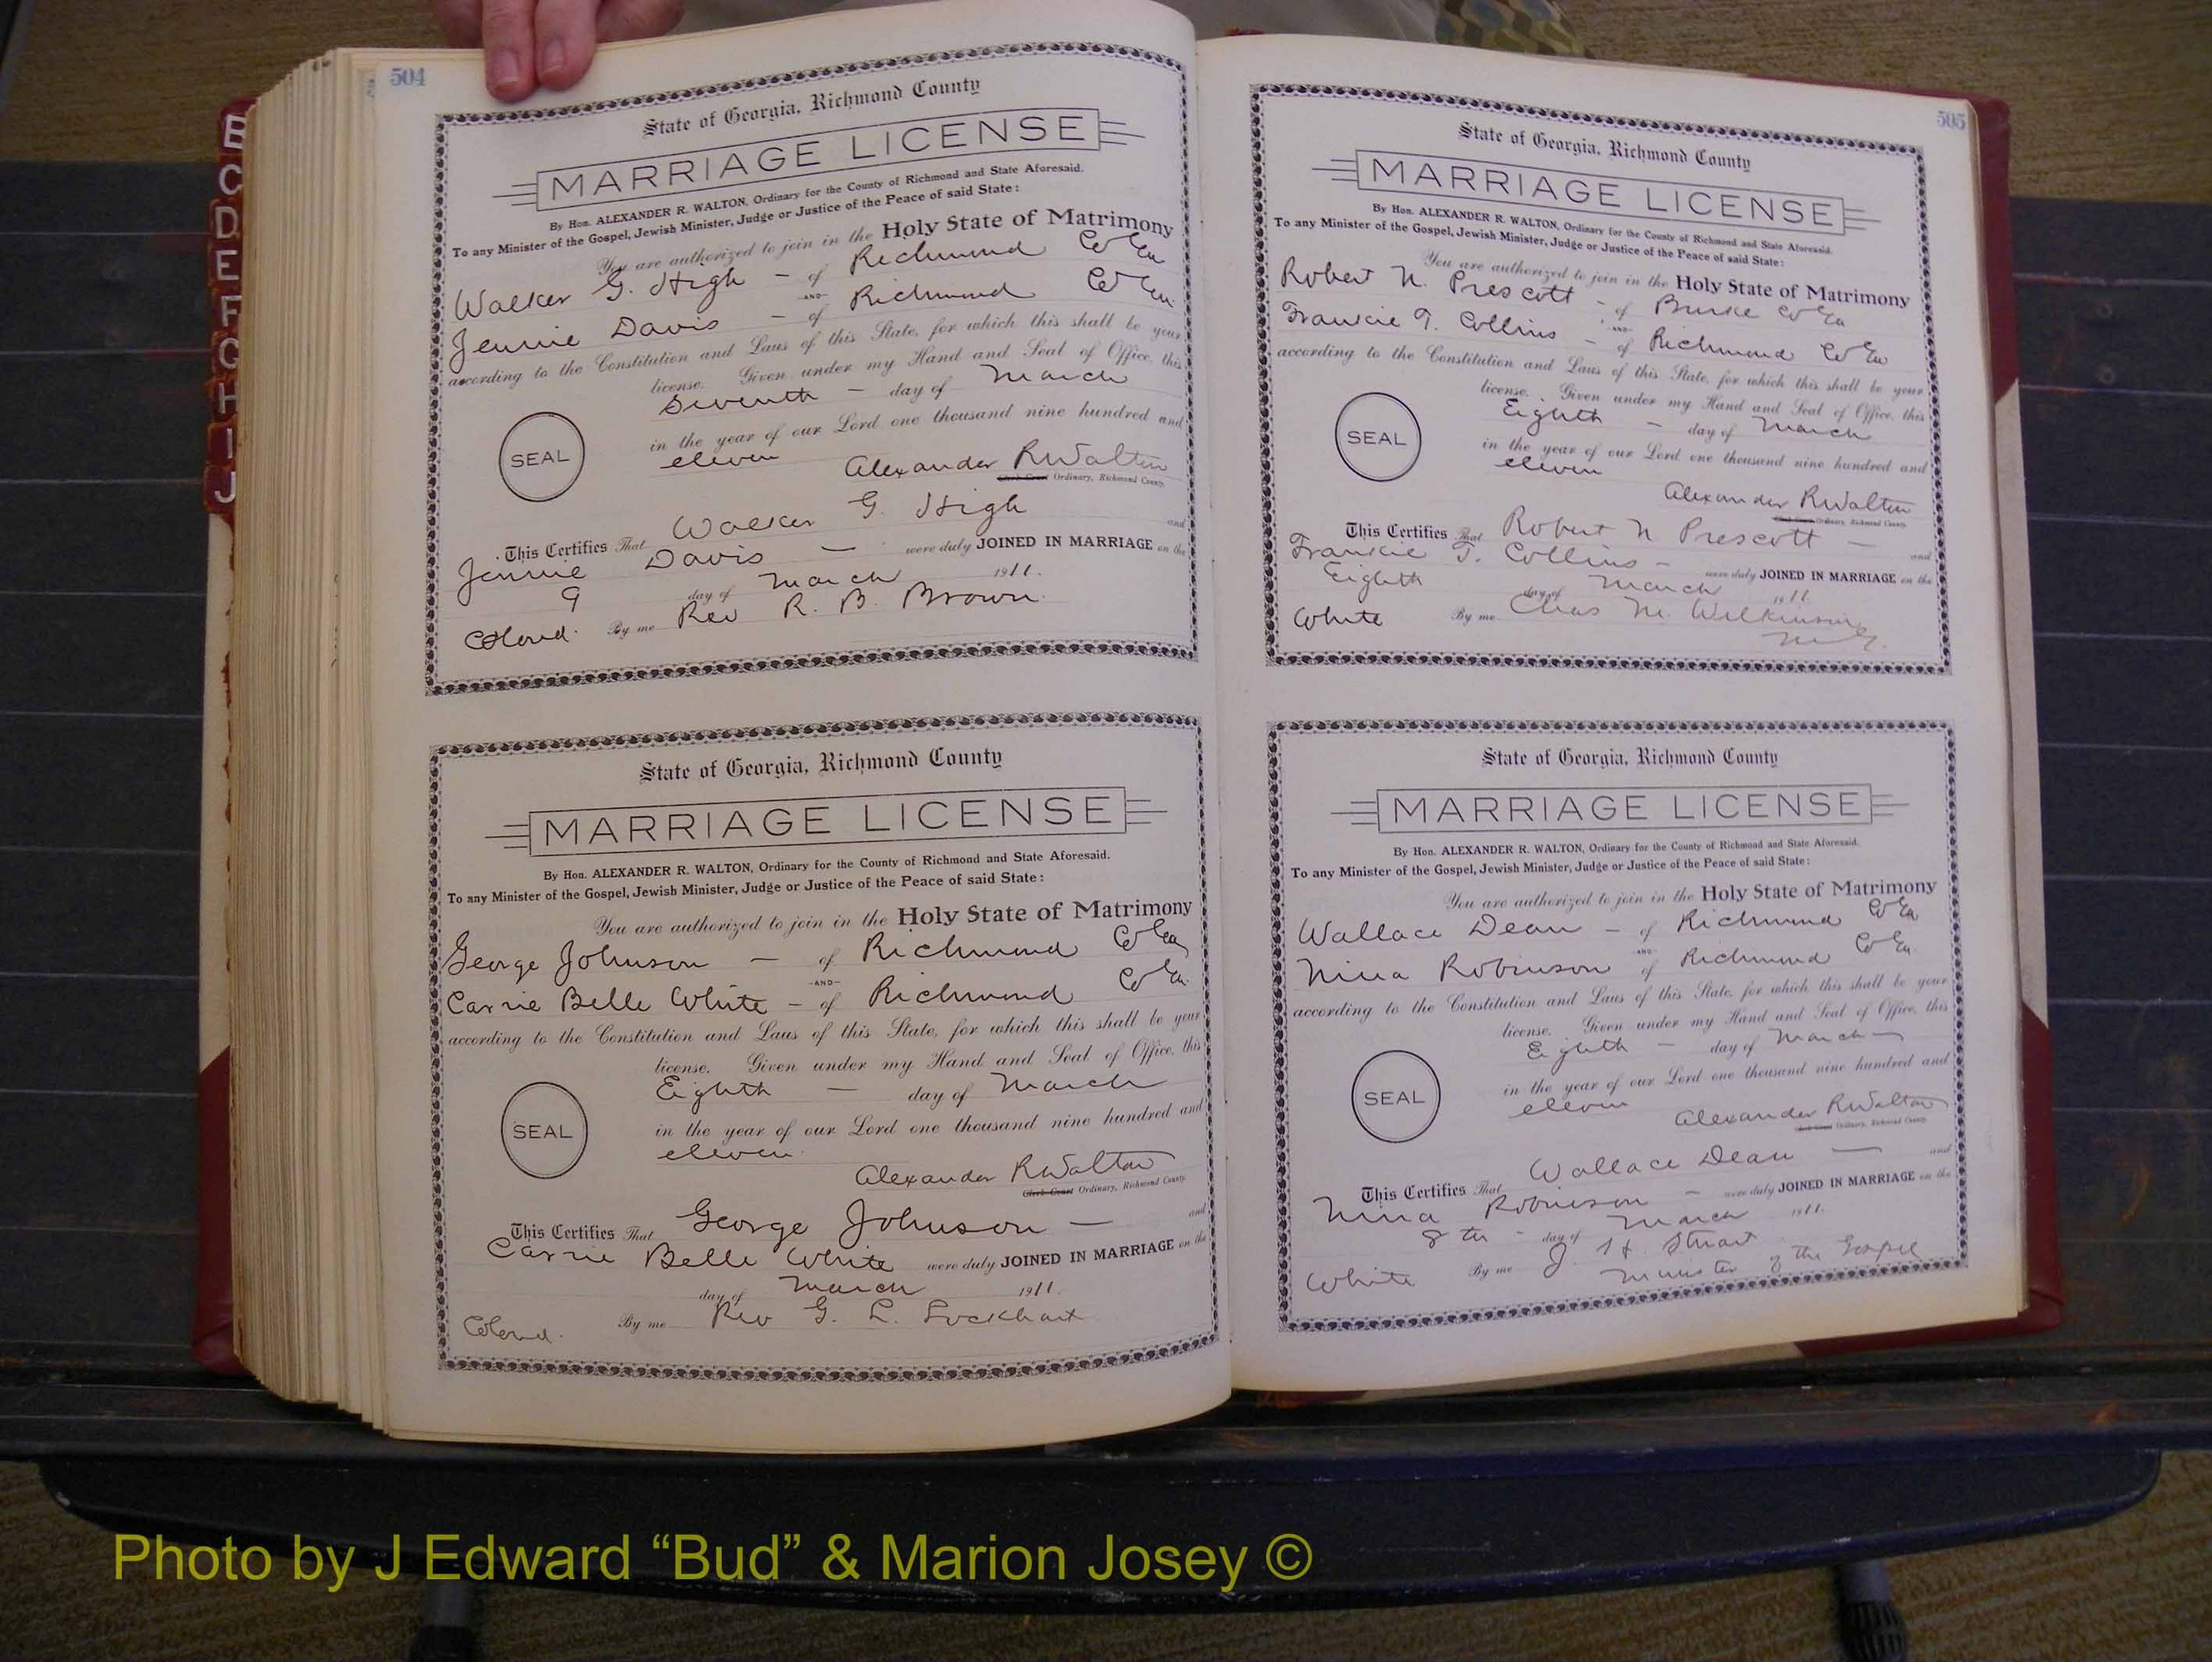 B
C
D
E
F
G
H
I
J
504
State of Georgia, Richmond County
MARRIAGE LICENSE
By Hon. ALEXANDER R. WALTON, Ordinary for the County of Richmond and State Aforesaid.
To any Minister of the Gospel, Jewish Minister, Judge or Justice of the Peace of said State:
You are authorized to join in the Holy State of Matrimony
Walker G. High - of Richmond Co Ga
-AND-
Jennie Davis - of Richmond Co Ga.
according to the Constitution and Laws of this State, for which this shall be your
license. Given under my Hand and Seal of Office, this
Seventh - day of March
in the year of our Lord one thousand nine hundred and
SEAL
eleven
Alexander R Walton
Clerk Court Ordinary, Richmond County.
This Certifies That Walker G. High and
Jennie Davis - were duly JOINED IN MARRIAGE on the
9 day of March 1911.
Colored. By me Rev R. B. Brown.
State of Georgia, Richmond County
MARRIAGE LICENSE
By Hon. ALEXANDER R. WALTON, Ordinary for the County of Richmond and State Aforesaid.
To any Minister of the Gospel, Jewish Minister, Judge or Justice of the Peace of said State:
You are authorized to join in the Holy State of Matrimony
George Johnson - of Richmond Co Ga
-AND-
Carrie Belle White - of Richmond Co Ga.
according to the Constitution and Laws of this State, for which this shall be your
license. Given under my Hand and Seal of Office, this
Eighth - day of March
in the year of our Lord one thousand nine hundred and
SEAL
eleven.
Alexander R Walton
Clerk Court Ordinary, Richmond County.
This Certifies That George Johnson - and
Carrie Belle White were duly JOINED IN MARRIAGE on the
day of March 1911.
Colored. By me Rev G. L. Lockhart
505
State of Georgia, Richmond County
MARRIAGE LICENSE
By Hon. ALEXANDER R. WALTON, Ordinary for the County of Richmond and State Aforesaid.
To any Minister of the Gospel, Jewish Minister, Judge or Justice of the Peace of said State:
You are authorized to join in the Holy State of Matrimony
Robert N. Prescott - of Burke Co Ga
-AND-
Frankie T. Collins - of Richmond Co Ga
according to the Constitution and Laws of this State, for which this shall be your
license. Given under my Hand and Seal of Office, this
Eighth - day of March
in the year of our Lord one thousand nine hundred and
SEAL
eleven
Alexander R Walton
Clerk Court Ordinary, Richmond County.
This Certifies That Robert N Prescott - and
Frankie T. Collins - were duly JOINED IN MARRIAGE on the
Eighth day of March 1911.
White By me Chas M. Wilkinson
M G.
State of Georgia, Richmond County
MARRIAGE LICENSE
By Hon. ALEXANDER R. WALTON, Ordinary for the County of Richmond and State Aforesaid.
To any Minister of the Gospel, Jewish Minister, Judge or Justice of the Peace of said State:
You are authorized to join in the Holy State of Matrimony
Wallace Dean - of Richmond Co Ga
-AND-
Nina Robinson of Richmond Co Ga.
according to the Constitution and Laws of this State, for which this shall be your
license. Given under my Hand and Seal of Office, this
Eighth - day of March
in the year of our Lord one thousand nine hundred and
SEAL
eleven
Alexander R Walton
Clerk Court Ordinary, Richmond County
This Certifies That Wallace Dean - and
Nina Robinson - were duly JOINED IN MARRIAGE on the
8th - day of March 1911.
White By me J. H. Stuart
Minister of the Gospel
Photo by J Edward “Bud” & Marion Josey ©